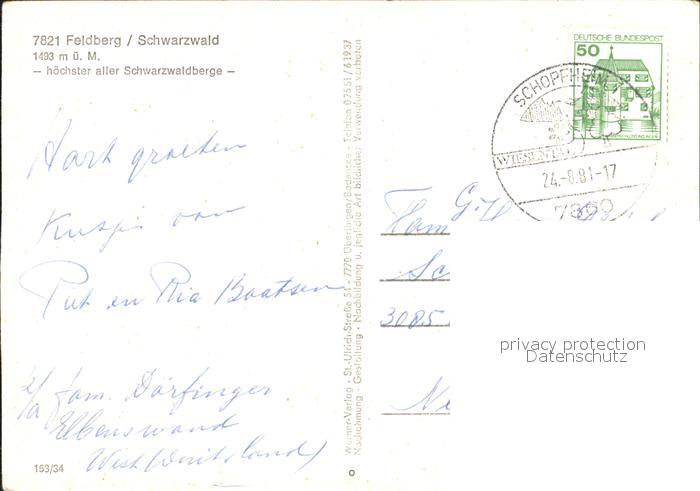 7821 Feldberg / Schwarzwald
1493 m ü. M.
— höchster aller Schwarzwaldberge —
Hart groeten
Kusjes van
Piet en Ria Baatsen
p/a fam. Dörfinger
Elbenswand
West (Duitsland)
153/34
Werner-Verlag · St.-Ulrich-Straße 51 · 7770 Überlingen/Bodensee · Telefon 07551/61937
Nachahmung · Gestaltung · Nachbildung u. jegliche Art bildlicher Verwendung verboten
DEUTSCHE BUNDESPOST
50
SCHOPFHEIM
WIESENTAL
24.-8.81-17
7860
Fam G.H
Sc
3085
Ne
privacy protection
Datenschutz